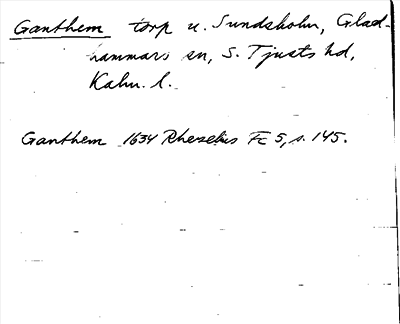 Ganthem torp u. Sundsholm, Glad-
hammars sn, S. Tjusts hd,
Kalm. l.
Ganthem 1634 Rhezelius FE 5, s. 145.